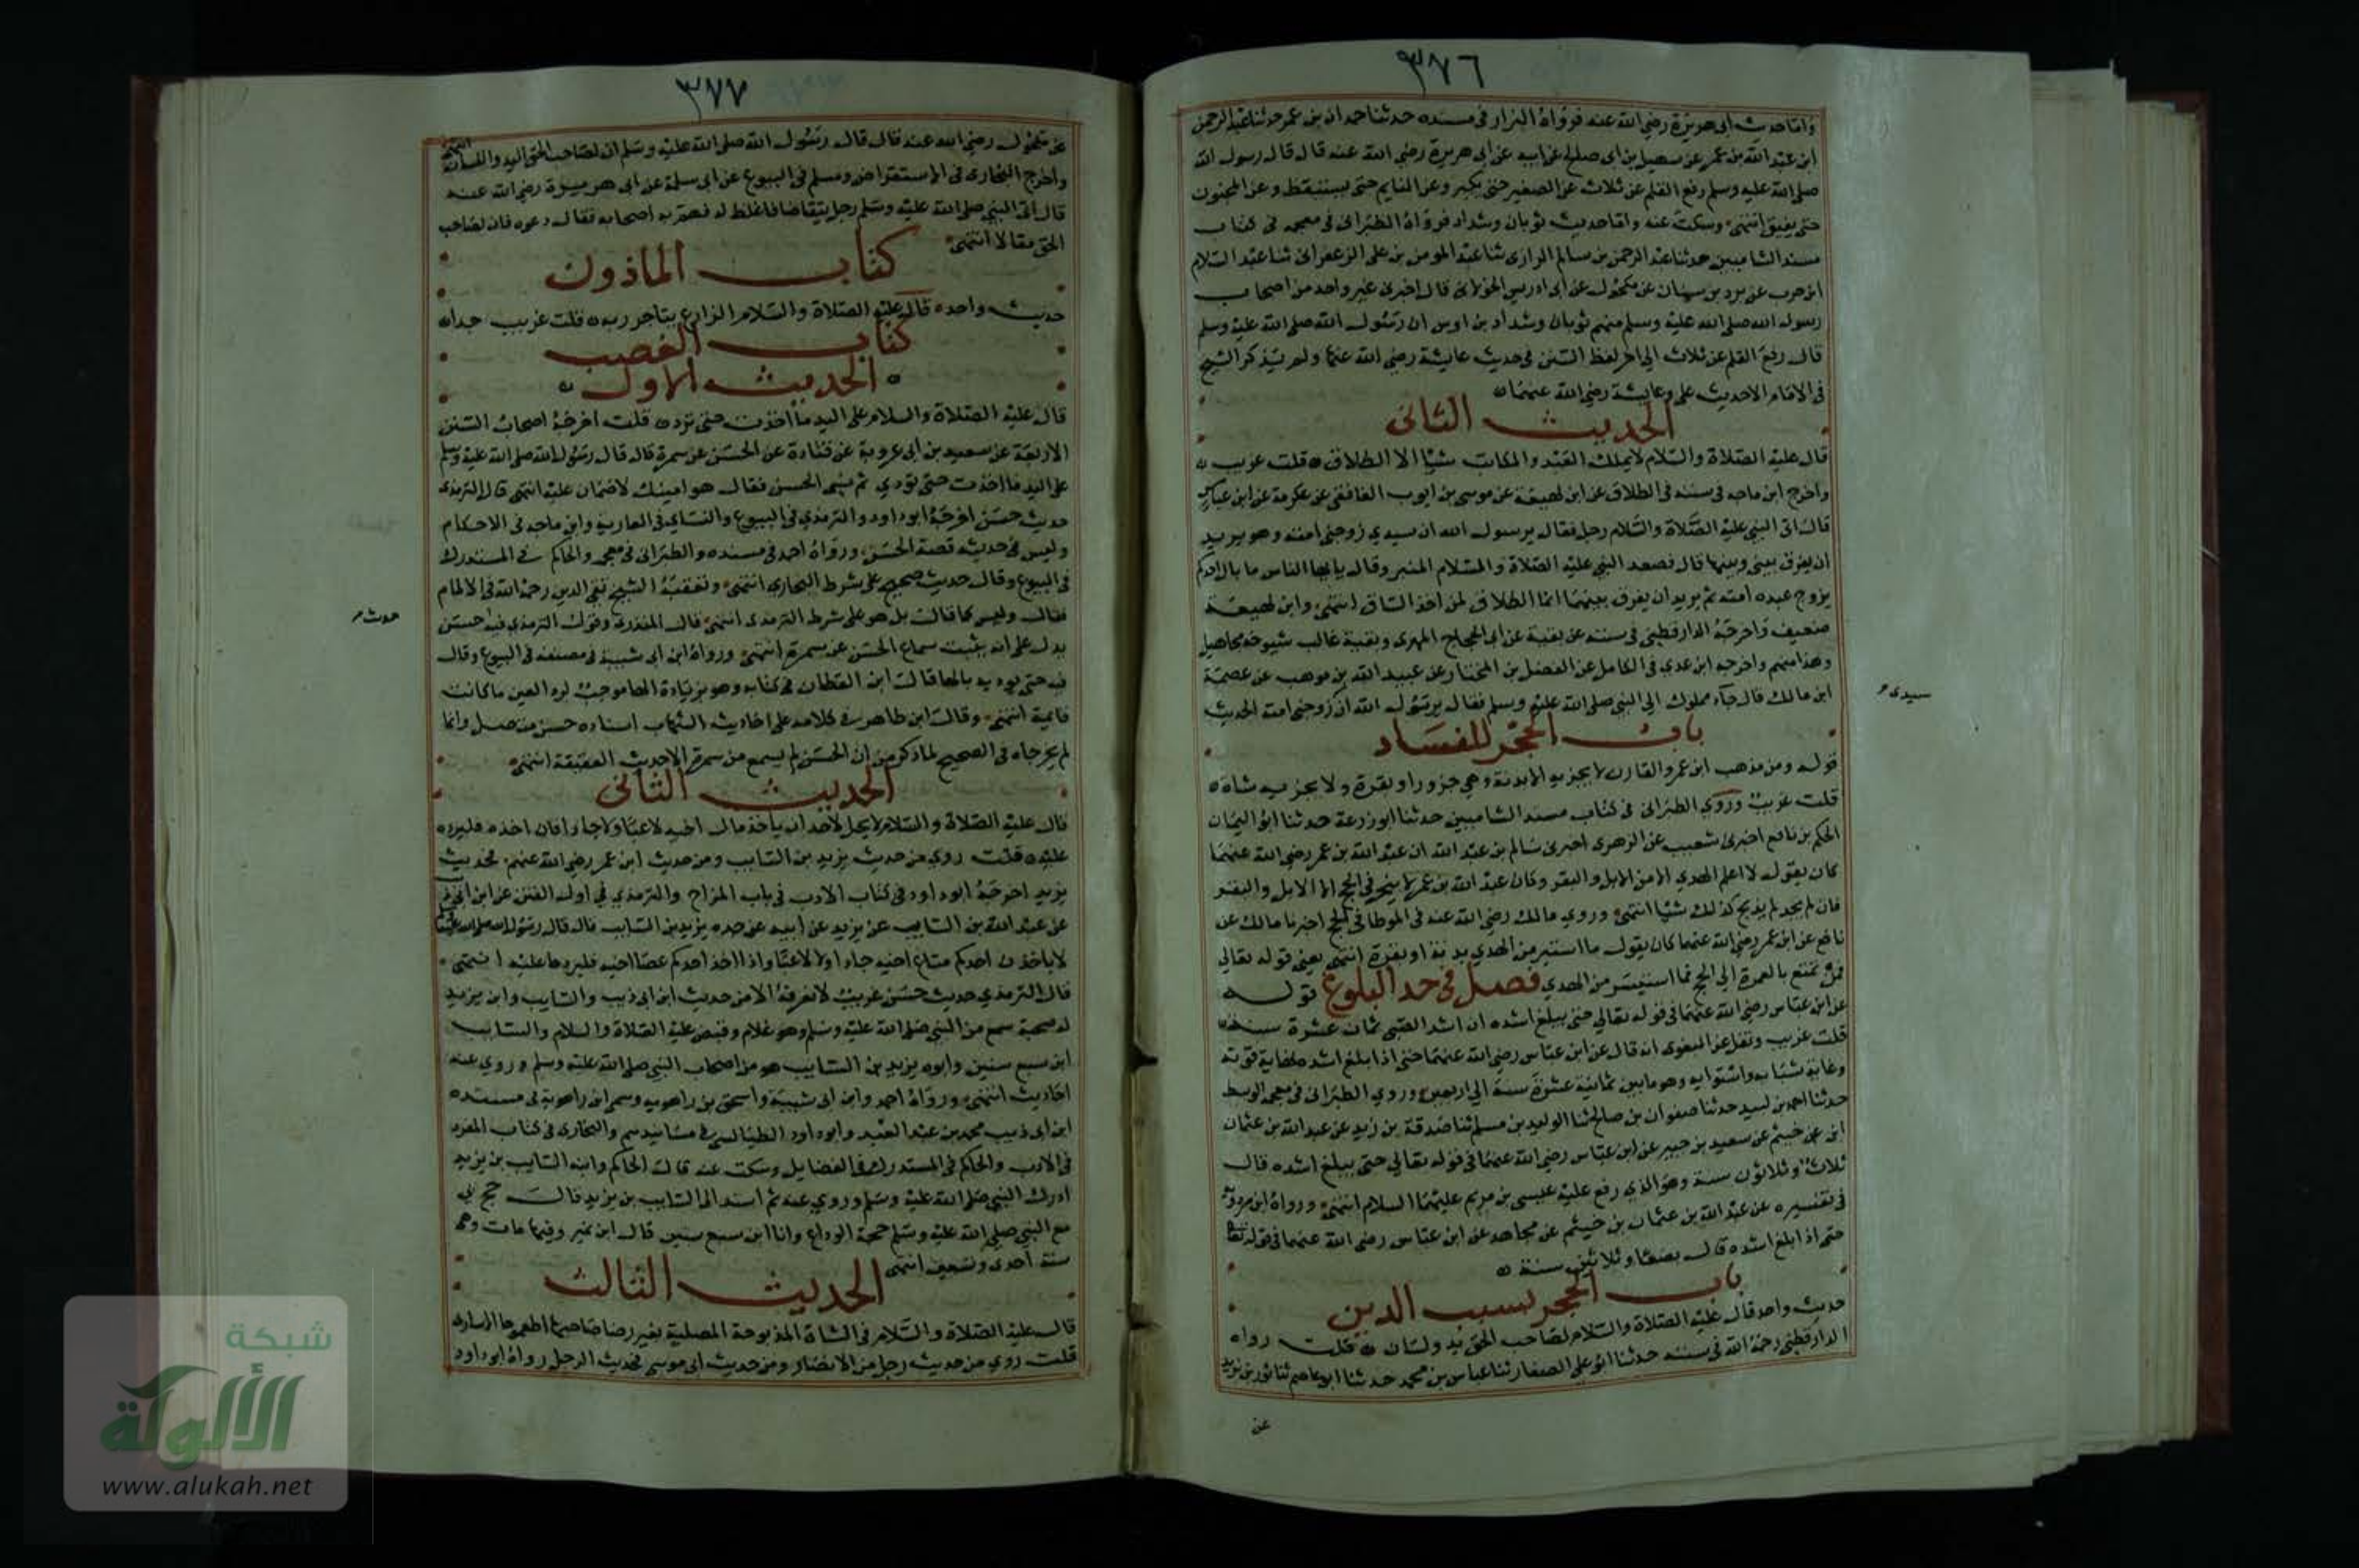 ٣٧٦
واما حديث ابى هريرة رضي الله عنه فرواه البزار فى مسنده حدثنا حمدان بن عمر حدثنا عبد الرحمن
ابن عبد الله بن عمر عن سهيل بن ابى صالح عن ابيه عن ابى هريرة رضي الله عنه قال قال رسول الله
صلى الله عليه وسلم رفع القلم عن ثلاث عن الصغير حتى يكبر وعن النايم حتى يستيقظ وعن المجنون
حتى يفيق انتهى وسكت عنه واما حديث ثوبان وشداد فرواه الطبرانى فى معجمه فى كتاب
مسند الشاميين حدثنا عبد الرحمن بن سالم الرازى ثنا عبد المومن بن على الزعفرانى ثنا عبد السلام
ابن حرب عن برد بن سنان عن مكحول عن ابى ادريس الخولانى قال اخبرنى غير واحد من اصحاب
رسول الله صلى الله عليه وسلم منهم ثوبان وشداد بن اوس ان رسول الله صلى الله عليه وسلم
قال رفع القلم عن ثلاث الى اخر لفظ السنن فى حديث عايشة رضي الله عنها ولم يذكر الشيخ
فى الامام الا حديث على وعايشة رضي الله عنهما
الحديث الثانى
قال عليه الصلاة والسلام لا يملك العبد والمكاتب شيا الا الطلاق قلت غريب
واخرج ابن ماجه فى سننه فى الطلاق عن ابن لهيعة عن موسى بن ايوب الغافقى عن عكرمة عن ابن عباس
قال اتى النبي عليه الصلاة والسلام رجل فقال يرسول الله ان سيدي زوجنى امته وهو يريد
ان يفرق بينى وبينها قال فصعد النبي عليه الصلاة والسلام المنبر وقال يا ايها الناس ما بال احدكم
يزوج عبده امته ثم يريد ان يفرق بينهما انما الطلاق لمن اخذ الساق انتهى وابن لهيعة
ضعيف واخرجه الدارقطنى فى سننه عن بقية عن ابى الحجاج المهرى وبقية غالب شيوخه مجاهيل
وهذا منهم واخرجه ابن عدي فى الكامل عن الفضل بن المختار عن عبيد الله بن موهب عن عصمة
ابن مالك قال جاء مملوك الى النبي صلى الله عليه وسلم فقال يرسول الله ان زوجنى امته الحديث
سيدى
باب الحجر للفساد
قوله ومن مذهب ابن عمر والقارن لا يجزيه الا بدنة وهي جزور او بقرة ولا يجزيه شاة
قلت غريب وروي الطبرانى فى كتاب مسند الشاميين حدثنا ابو زرعة حدثنا ابو اليمان
الحكم بن نافع اخبرنى شعيب عن الزهرى اخبرنى سالم بن عبد الله ان عبد الله بن عمر رضي الله عنهما
كان يقول لا اعلم الهدي الا من الابل والبقر وكان عبد الله بن عمر لا ينحر فى الحج الا الابل والبقر
فان لم يجد لم يذبح كذلك شيا انتهى وروي مالك رضي الله عنه فى الموطا فى الحج اخبرنا مالك عن
نافع عن ابن عمر رضي الله عنهما كان يقول ما استيسر من الهدي بدنة او بقرة انتهى يعنى قوله تعالى
فمن تمتع بالعمرة الى الحج فما استيسر من الهدي فصل فى حد البلوغ قوله
عن ابن عباس رضي الله عنهما فى قوله تعالى حتى يبلغ اشده ان اشد الصبى ثمان عشرة سنة
قلت غريب ونقل عن البغوى انه قال عن ابن عباس رضي الله عنهما حتى اذا بلغ اشده نهاية قوته
وغاية شبابه واستوايه وهو ما بين ثمانية عشرة سنة الى اربعين وروي الطبرانى فى معجمه الوسط
حدثنا احمد بن لبيد حدثنا صفوان بن صالح ثنا الوليد بن مسلم ثنا صدقة بن زيد عن عبد الله بن عثمان
ابن خيثم عن سعيد بن جبير عن ابن عباس رضي الله عنهما فى قوله تعالى حتى يبلغ اشده قال
ثلاث وثلاثون سنة وهو الذي رفع عليه عيسى بن مريم عليهما السلام انتهى ورواه ابن مردويه
فى تفسيره عن عبد الله بن عثمان بن خيثم عن مجاهد عن ابن عباس رضي الله عنهما فى قوله تعالى
حتى اذا بلغ اشده قال بضعا وثلاثين سنة
باب الحجر بسبب الدين
حديث واحد قال عليه الصلاة والسلام لصاحب الحق يد ولسان قلت رواه
الدارقطنى رحمه الله فى سننه حدثنا ابو على الصفار ثنا عباس بن محمد حدثنا ابو عاصم ثنا ثور بن يزيد
عن
٣٧٧
عن مكحول رضي الله عنه قال قال رسول الله صلى الله عليه وسلم ان لصاحب الحق اليد واللسان انتهى
واخرج البخارى فى الاستقراض ومسلم فى البيوع عن ابى سلمة عن ابى هريرة رضي الله عنه
قال اتى النبي صلى الله عليه وسلم رجل يتقاضاه فاغلظ له فهم به اصحابه فقال دعوه فان لصاحب
الحق مقالا انتهى
كتاب الماذون
حديث واحد قال عليه الصلاة والسلام الزارع يتاجر ربه قلت غريب جدا
كتاب الغصب
الحديث الاول
قال عليه الصلاة والسلام على اليد ما اخذت حتى ترد قلت اخرجه اصحاب السنن
الاربعة عن سعيد بن ابى عروبة عن قتادة عن الحسن عن سمرة قال قال رسول الله صلى الله عليه وسلم
على اليد ما اخذت حتى تؤدي ثم نسى الحسن فقال هو امينك لا ضمان عليه انتهى قال الترمذى
حديث حسن اخرجه ابو داود والترمذي فى البيوع والنساي فى العارية وابن ماجه فى الاحكام
وليس فى حديثه قصة الحسن ورواه احمد فى مسنده والطبرانى فى معجمه والحاكم فى المستدرك
فى البيوع وقال حديث صحيح على شرط البخارى انتهى وتعقبه الشيخ تقى الدين رحمه الله فى الالمام
فقال وليس كما قال بل هو على شرط الترمذى انتهى قال المنذرى وقول الترمذى فيه حسن
حديث
يدل على انه يثبت سماع الحسن عن سمرة انتهى ورواه ابن ابى شيبة فى مصنفه فى البيوع وقال
فيه حتى يوديه بالها قال ابن القطان فى كتابه وهو بزيادة الها موجب لرد العين ما كانت
قايمة انتهى وقال ابن طاهر فى كلامه على احاديث الشهاب اسناده حسن متصل وانما
لم يخرجاه فى الصحيح لما ذكر من ان الحسن لم يسمع من سمرة الا حديث العقيقة انتهى
الحديث الثانى
قال عليه الصلاة والسلام لا يحل لاحد ان ياخذ مال اخيه لاعبا ولا جادا فان اخذه فليرده
عليه قلت روي من حديث يزيد بن السايب ومن حديث ابن عمر رضي الله عنهم فحديث
يزيد اخرجه ابو داود فى كتاب الادب فى باب المزاح والترمذي فى اول الفتن عن ابن ابى ذيب
عن عبد الله بن السايب عن يزيد عن ابيه عن جده يزيد بن السايب قال قال رسول الله صلى الله عليه وسلم
لا ياخذن احدكم متاع اخيه جادا ولا لاعبا واذا اخذ احدكم عصا اخيه فليردها عليه انتهى
قال الترمذي حديث حسن غريب لا نعرفه الا من حديث ابن ابى ذيب والسايب وابن يزيد
له صحبة سمع من النبي صلى الله عليه وسلم وهو غلام وقبض عليه الصلاة والسلام والسايب
ابن سبع سنين وابوه يزيد بن السايب هو من اصحاب النبي صلى الله عليه وسلم وروي عنه
احاديث انتهى ورواه احمد وابن ابى شيبة واسحق بن راهويه وسمى ابن راهوية فى مسنده
ابن ابى ذيب محمد بن عبد العبد وابو داود الطيالسى فى مسانيدهم والبخارى فى كتاب المفرد
فى الادب والحاكم فى المستدرك فى الفضايل وسكت عنه قال الحاكم وابنه السايب بن يزيد
ادرك النبي صلى الله عليه وسلم وروي عنه ثم اسند الى السايب بن يزيد قال حج بى
مع النبي صلى الله عليه وسلم حجة الوداع وانا ابن سبع سنين قال ابن نمير وفيها مات وهى
سنة احدى وتسعين انتهى
الحديث الثالث
قال عليه الصلاة والسلام فى الشاة المذبوحة المصلية بغير رضا صاحبها اطعموها الاسارى
قلت روي من حديث رجل من الانصار ومن حديث ابى موسى فحديث الرجل رواه ابو داود
شبكة
الألوكة
www.alukah.net